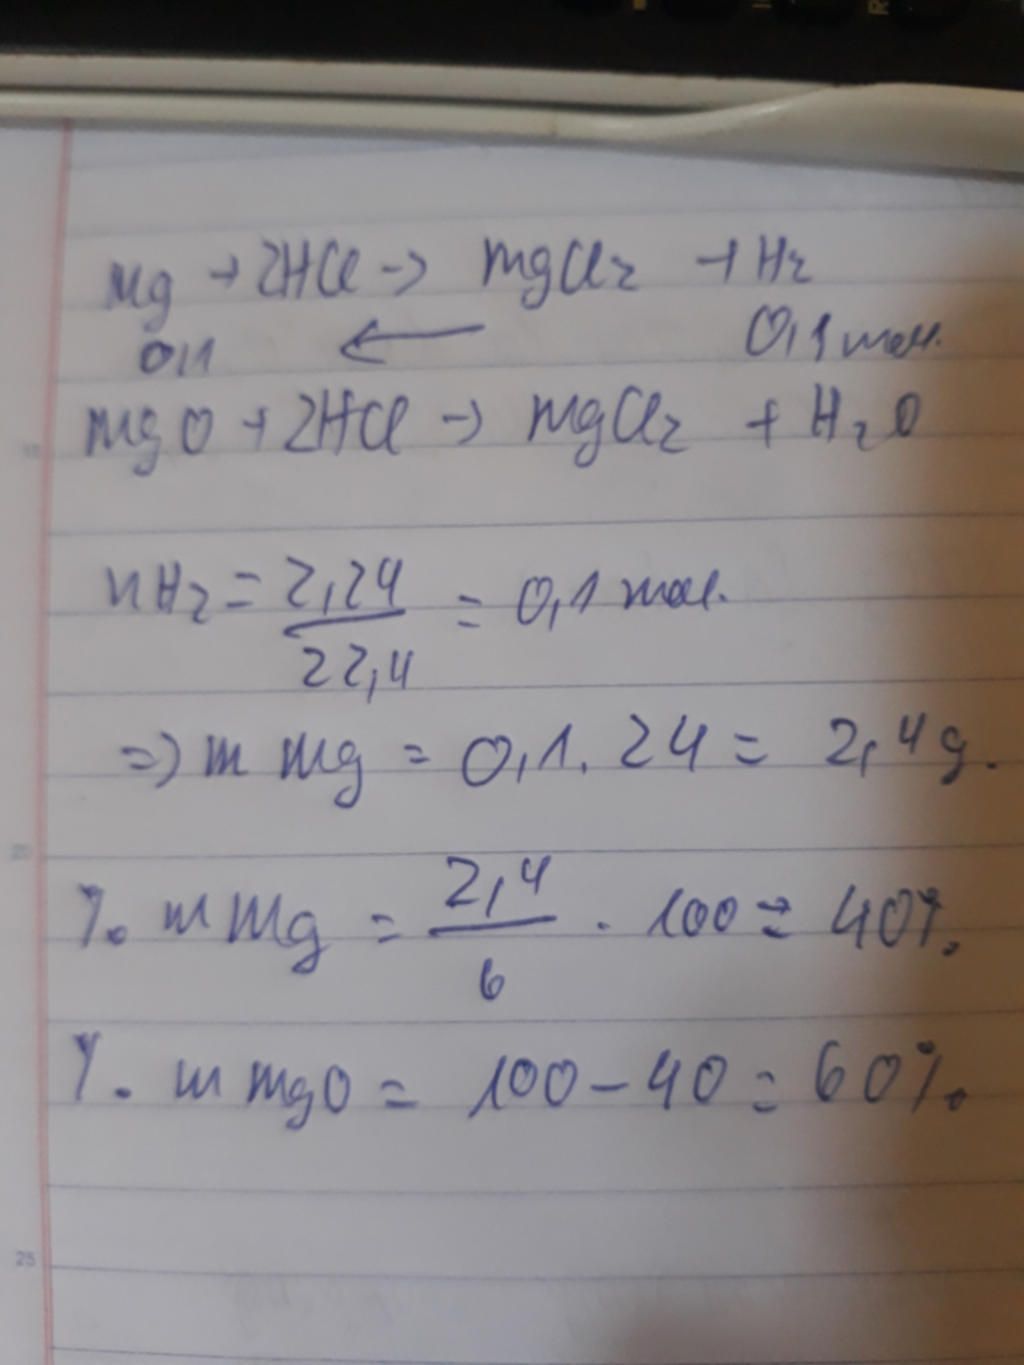 Mg + 2HCl -> MgCl2 + H2
0,1 <- 0,1 mol.
MgO + 2HCl -> MgCl2 + H2O
nH2 = 2,24/22,4 = 0,1 mol.
=> m Mg = 0,1. 24 = 2,4g.
% m Mg = 2,4/6 . 100 = 40%
% m MgO = 100 - 40 = 60%
20
25